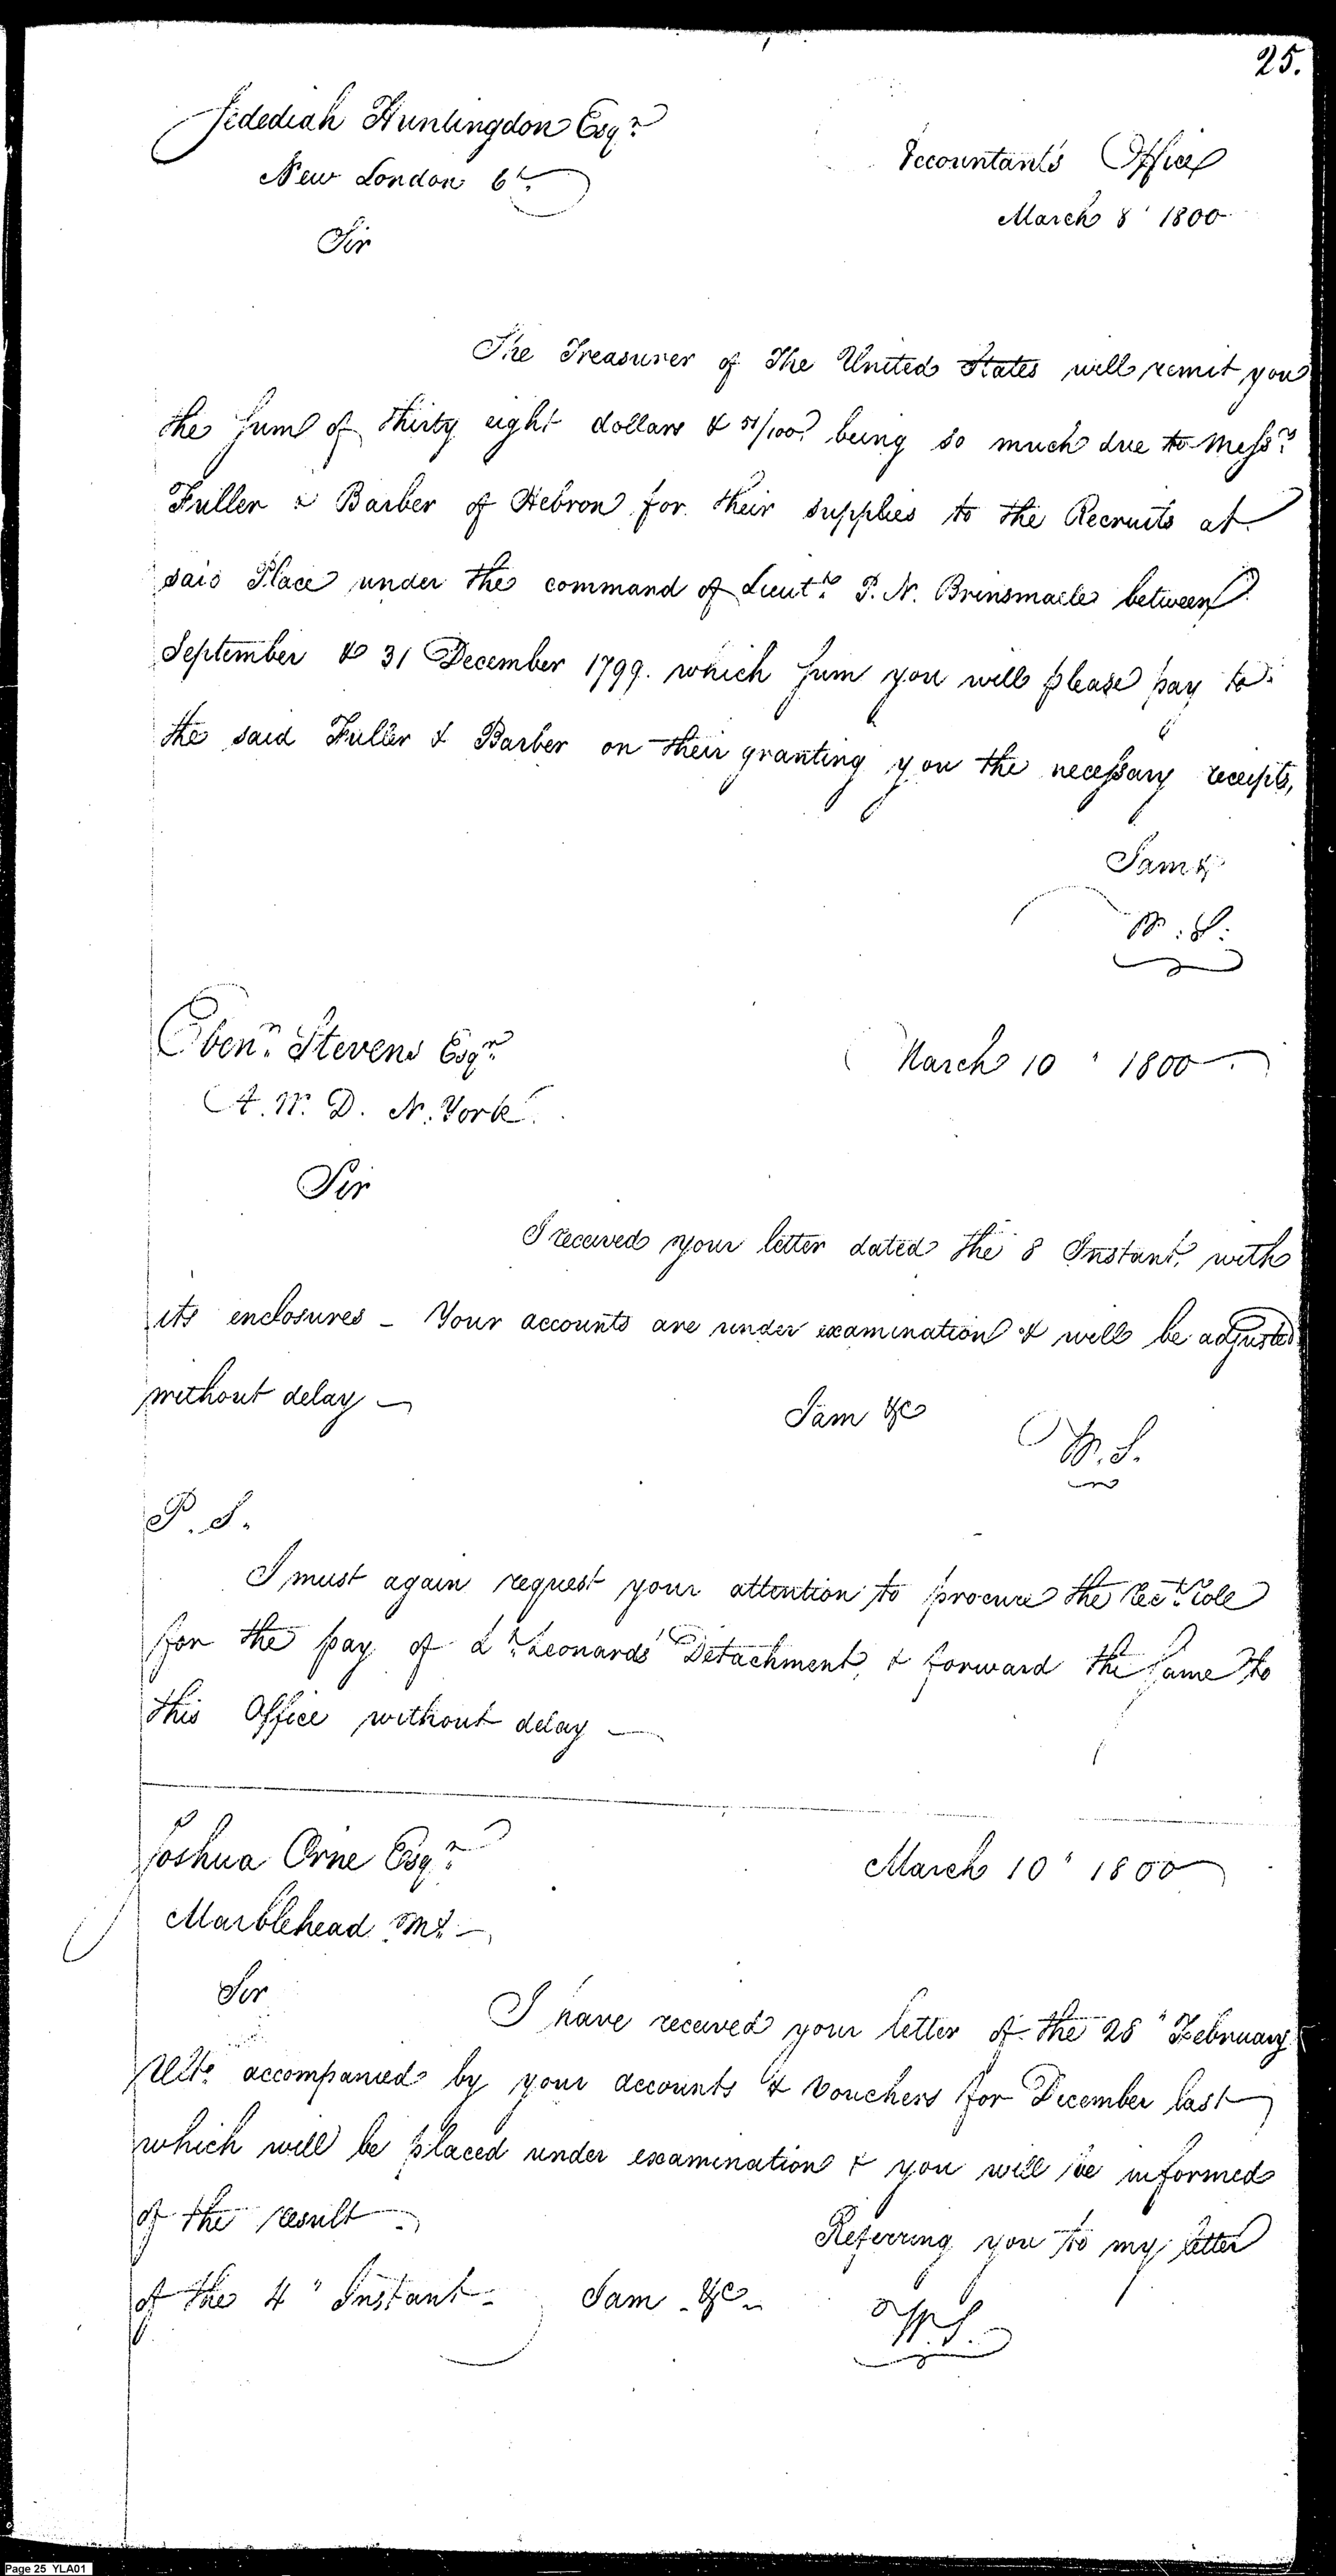 25.
Jedediah Huntingdon Esqr.
Accountants Office
New London Ct.
March 8" 1800
Sir
The Treasurer of The United States will remit you
the sum of thirty eight dollars & 51/100. being so much due to Messrs.
Fuller & Barber of Hebron for their supplies to the Recruits at
said Place under the command of Lieutt. P. N. Brinsmade between
September & 31 December 1799. which sum you will please pay to
the said Fuller & Barber on their granting you the necessary receipts,
I am &
W. S.
Ebenr. Stevens Esqr.
March 10" 1800
A. W. D. N. York.
Sir
I received your letter dated the 8 Instant, with
its enclosures - Your accounts are under examination & will be adjusted
without delay -
I am &c
W. S.
P. S.
I must again request your attention to procure the rect. role
for the pay of Lt. Leonards Detachment, & forward the same to
this Office without delay -
Joshua Orne Esqr.
March 10" 1800
Marblehead Ms. -
Sir
I have received your letter of the 28" February
Ulto. accompanied by your accounts & vouchers for December last
which will be placed under examination & you will be informed
of the result -
Referring you to my letter
of the 4" Instant - I am &c -
W. S.
Page 25 YLA01